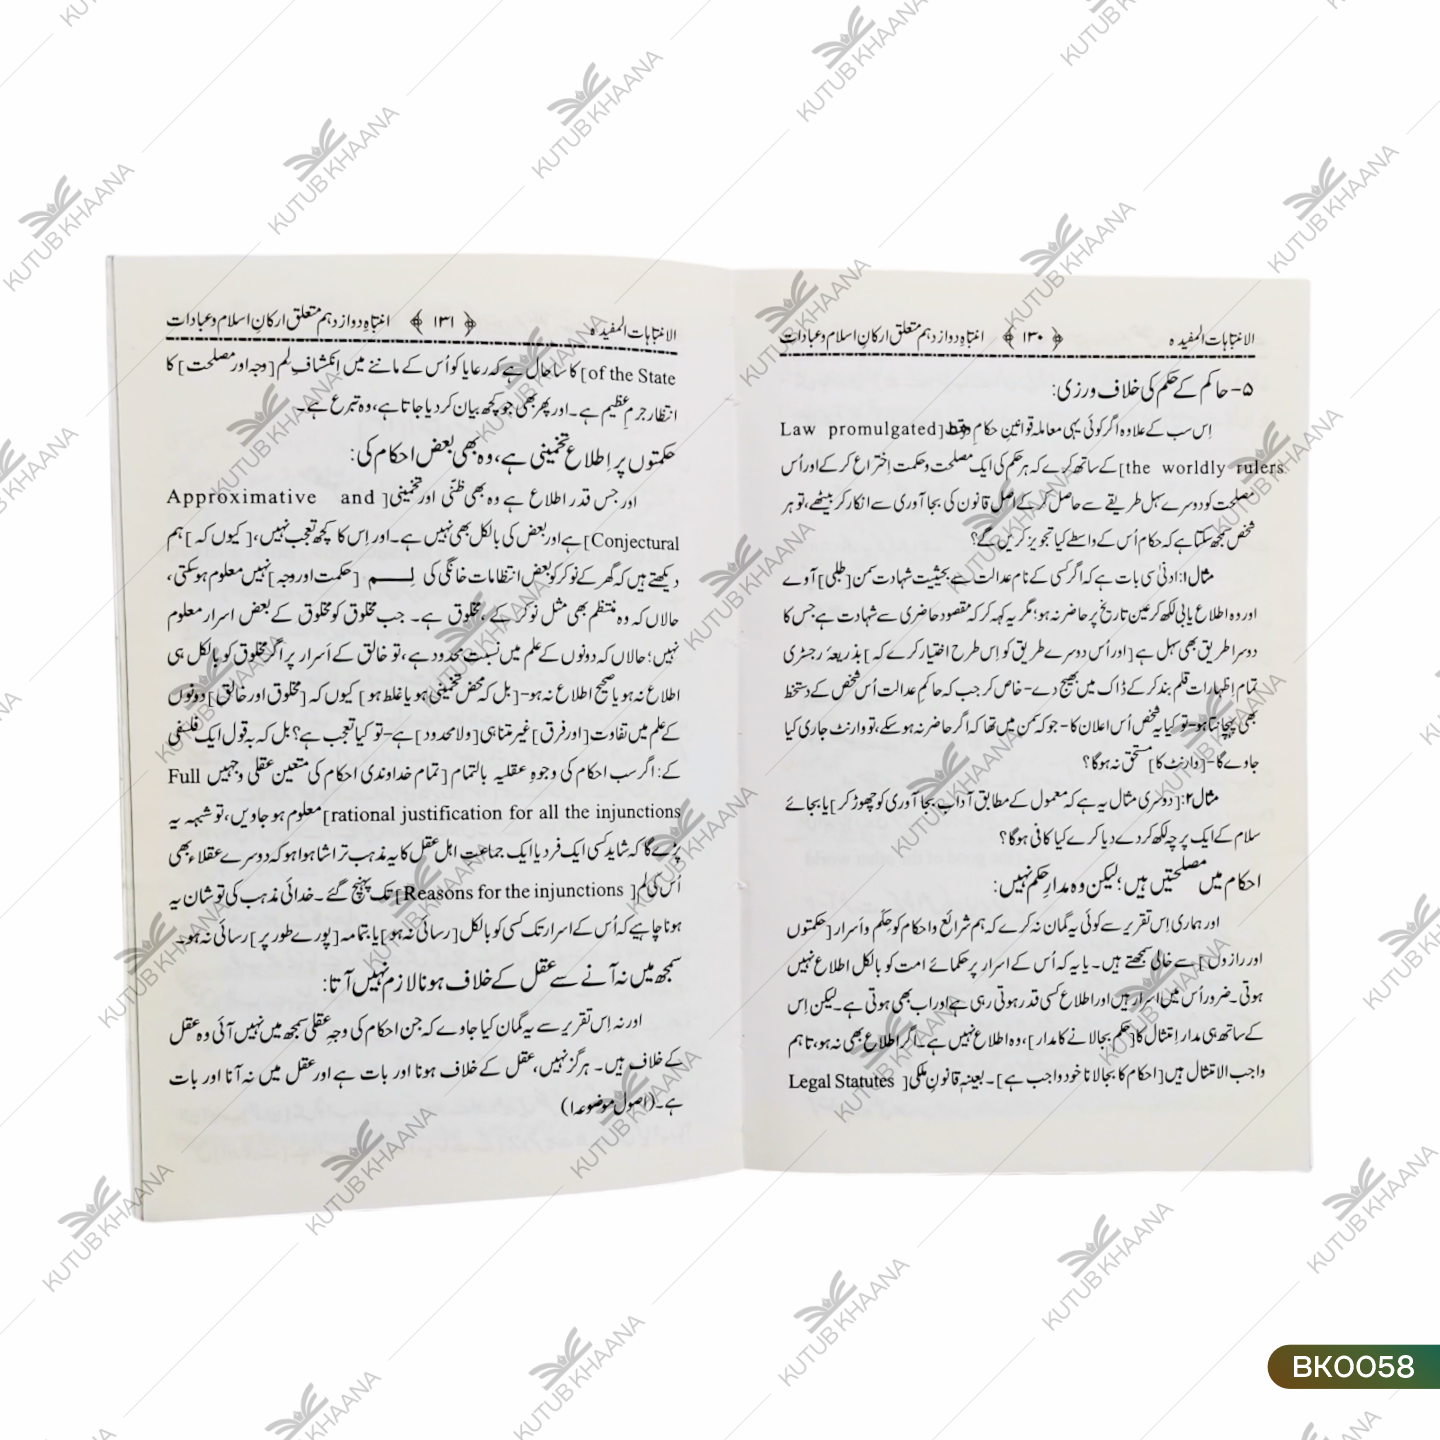 الانتباہات المفیدہ ﴿۱۳۰﴾ انتباہِ دوازدہم متعلق ارکانِ اسلام وعبادات
۵- حاکم کے حکم کی خلاف ورزی:
اِس سب کے علاوہ اگر کوئی یہی معاملہ قوانینِ حکامِ وقت[Law promulgated
the worldly rulers]کے ساتھ کرے کہ ہر حکم کی ایک مصلحت وحکمت اِختراع کر کے اور اُس
مصلحت کو دوسرے سہل طریقے سے حاصل کر کے اصل قانون کی بجا آوری سے انکار کر بیٹھے، تو ہر
شخص سمجھ سکتا ہے کہ حکام اُس کے واسطے کیا تجویز کریں گے؟
مثال۱: ادنیٰ سی بات ہے کہ اگر کسی کے نام عدالت سے بحیثیت شہادت سمن[طلبی] آوے
اور وہ اطلاع یابی لکھ کر عین تاریخ پر حاضر نہ ہو؛ مگر یہ کہہ کر کہ مقصود حاضری سے شہادت ہے جس کا
دوسرا طریق بھی سہل ہے[اور اُس دوسرے طریق کو اِس طرح اختیار کرے کہ] بذریعۂ رجسٹری
تمام اِظہارات قلم بند کر کے ڈاک میں بھیج دے- خاص کر جب کہ حاکمِ عدالت اُس شخص کے دستخط
بھی پہچانتا ہو- تو کیا یہ شخص اُس اعلان کا- جو کہ سمن میں تھا کہ اگر حاضر نہ ہو سکے، تو وارنٹ جاری کیا
جاوے گا-[وارنٹ کا] مستحق نہ ہوگا؟
مثال۲:[دوسری مثال یہ ہے کہ معمول کے مطابق آدابِ بجا آوری کو چھوڑ کر] یا بجائے
سلام کے ایک پرچہ لکھ کر دے دیا کرے کیا کافی ہوگا؟
احکام میں مصلحتیں ہیں؛ لیکن وہ مدارِ حکم نہیں:
اور ہماری اِس تقریر سے کوئی یہ گمان نہ کرے کہ ہم شرائع واحکام کو حِکَم وأسرار[حکمتوں
اور رازوں] سے خالی سمجھتے ہیں۔ یا یہ کہ اُس کے اسرار پر حکمائے امت کو بالکل اطلاع نہیں
ہوتی۔ ضرور اُس میں اسرار ہیں اور اطلاع کسی قدر ہوتی رہی ہے اور اب بھی ہوتی ہے۔ لیکن اِس
کے ساتھ ہی مدار اِمتثال کا[حکم بجا لانے کا مدار]، وہ اطلاع نہیں ہے۔ اگر اطلاع بھی نہ ہو، تاہم
واجب الامتثال ہیں[احکام کا بجا لانا خود واجب ہے]۔ بعینہٖ قانونِ ملکی[Legal Statutes
الانتباہات المفیدہ ﴿۱۳۱﴾ انتباہِ دوازدہم متعلق ارکانِ اسلام وعبادات
of the State] کا سا حال ہے کہ رعایا کو اُس کے ماننے میں اِنکشافِ لِم[وجہ اور مصلحت] کا
انتظار جرمِ عظیم ہے۔ اور پھر بھی جو کچھ بیان کر دیا جاتا ہے، وہ تبرع ہے۔
حکمتوں پر اِطلاع تخمینی ہے، وہ بھی بعض احکام کی:
اور جس قدر اطلاع ہے وہ بھی ظنّی اور تخمینی[Approximative and
Conjectural] ہے اور بعض کی بالکل بھی نہیں ہے۔ اور اِس کا کچھ تعجب نہیں،[کیوں کہ] ہم
دیکھتے ہیں کہ گھر کے نوکر کو بعض انتظامات خانگی کی لِـــم [حکمت اور وجہ] نہیں معلوم ہو سکتی،
حالاں کہ وہ منتظم بھی مثل نوکر کے، مخلوق ہے۔ جب مخلوق کو مخلوق کے بعض اسرار معلوم
نہیں؛ حالاں کہ دونوں کے علم میں نسبت محدود ہے، تو خالق کے اَسرار پر اگر مخلوق کو بالکل ہی
اطلاع نہ ہو یا صحیح اطلاع نہ ہو-[بل کہ محض تخمینی ہو یا غلط ہو] کیوں کہ [مخلوق اور خالق] دونوں
کے علم میں تفاوت[اور فرق] غیر متناہی[ولا محدود] ہے- تو کیا تعجب ہے؟ بل کہ بہ قول ایک فلسفی
کے: اگر سب احکام کی وجوہِ عقلیہ بالتمام [تمام خداوندی احکام کی متعین عقلی وجہیں Full
rational justification for all the injunctions] معلوم ہو جاویں، تو شبہہ یہ
پڑے گا کہ شاید کسی ایک فرد یا ایک جماعت اہل عقل کا یہ مذہب تراشا ہوا ہو کہ دوسرے عقلاء بھی
اُس کی لم[Reasons for the injunctions] تک پہنچ گئے۔ خدائی مذہب کی تو شان یہ
ہونا چاہیے کہ اُس کے اسرار تک کسی کو بالکل[رسائی نہ ہو] یا بتمامہ[پورے طور پر] رسائی نہ ہو۔
سمجھ میں نہ آنے سے عقل کے خلاف ہونا لازم نہیں آتا:
اور نہ اِس تقریر سے یہ گمان کیا جاوے کہ جن احکام کی وجہِ عقلی سمجھ میں نہیں آئی وہ عقل
کے خلاف ہیں۔ ہرگز نہیں، عقل کے خلاف ہونا اور بات ہے اور عقل میں نہ آنا اور بات
ہے۔(اصول موضوعہ۱)
KUTUB KHAANA
BK0058